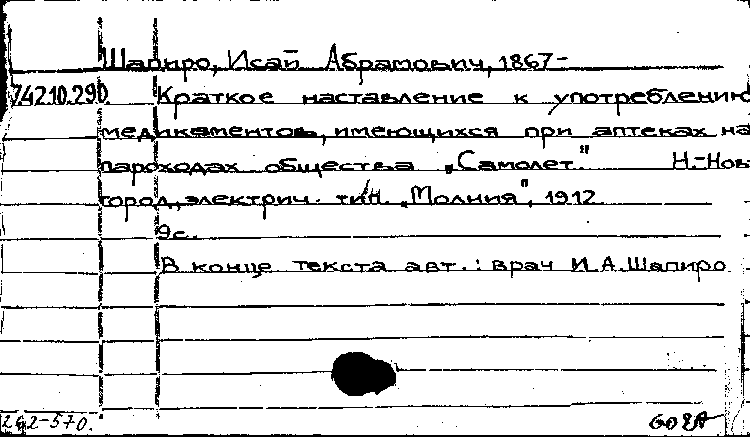 Шапиро, Исай Абрамович, 1867-
7.42.10.290. Краткое наставление к употреблению
медикаментов, имеющихся при аптеках на
пароходах общества „Самолет." Н.-Нов-
город, электрич. тип. „Молния", 1912.
9с.
В конце текста авт.: врач И.А.Шапиро
262-570.